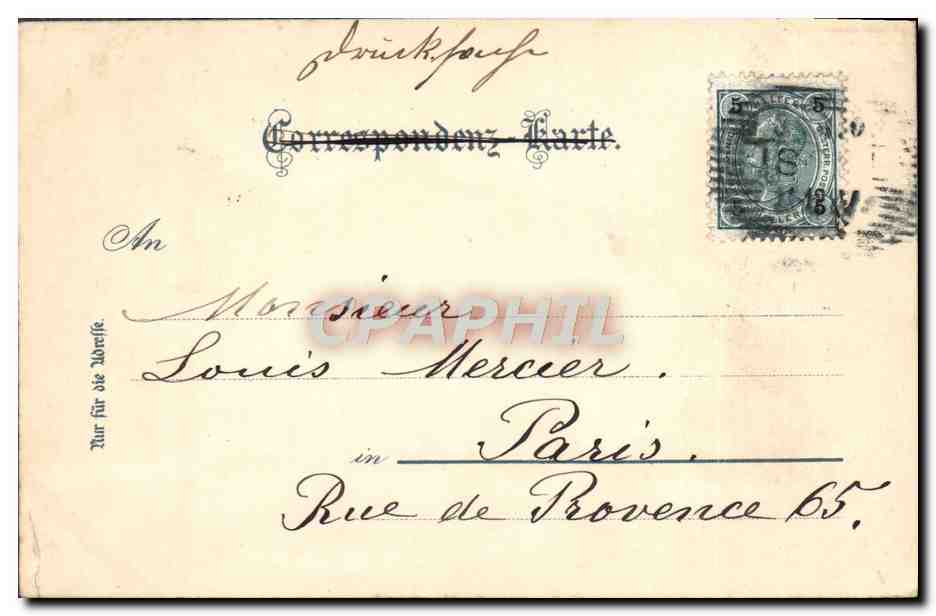 Drucksache
Correspondenz-Karte.
5 5
An
Monsieur
CPAPHIL
Louis Mercier.
in Paris.
Rue de Provence 65.
Nur für die Adresse.